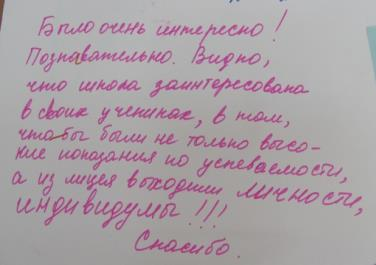 Было очень интересно!
Познавательно. Видно,
что школа заинтересована
в своих учениках, в том,
чтобы были не только высо-
кие показания по успеваемости,
а из лицея выходили ЛИЧНОСТИ,
ИНДИВИДУМЫ!!!
Спасибо.